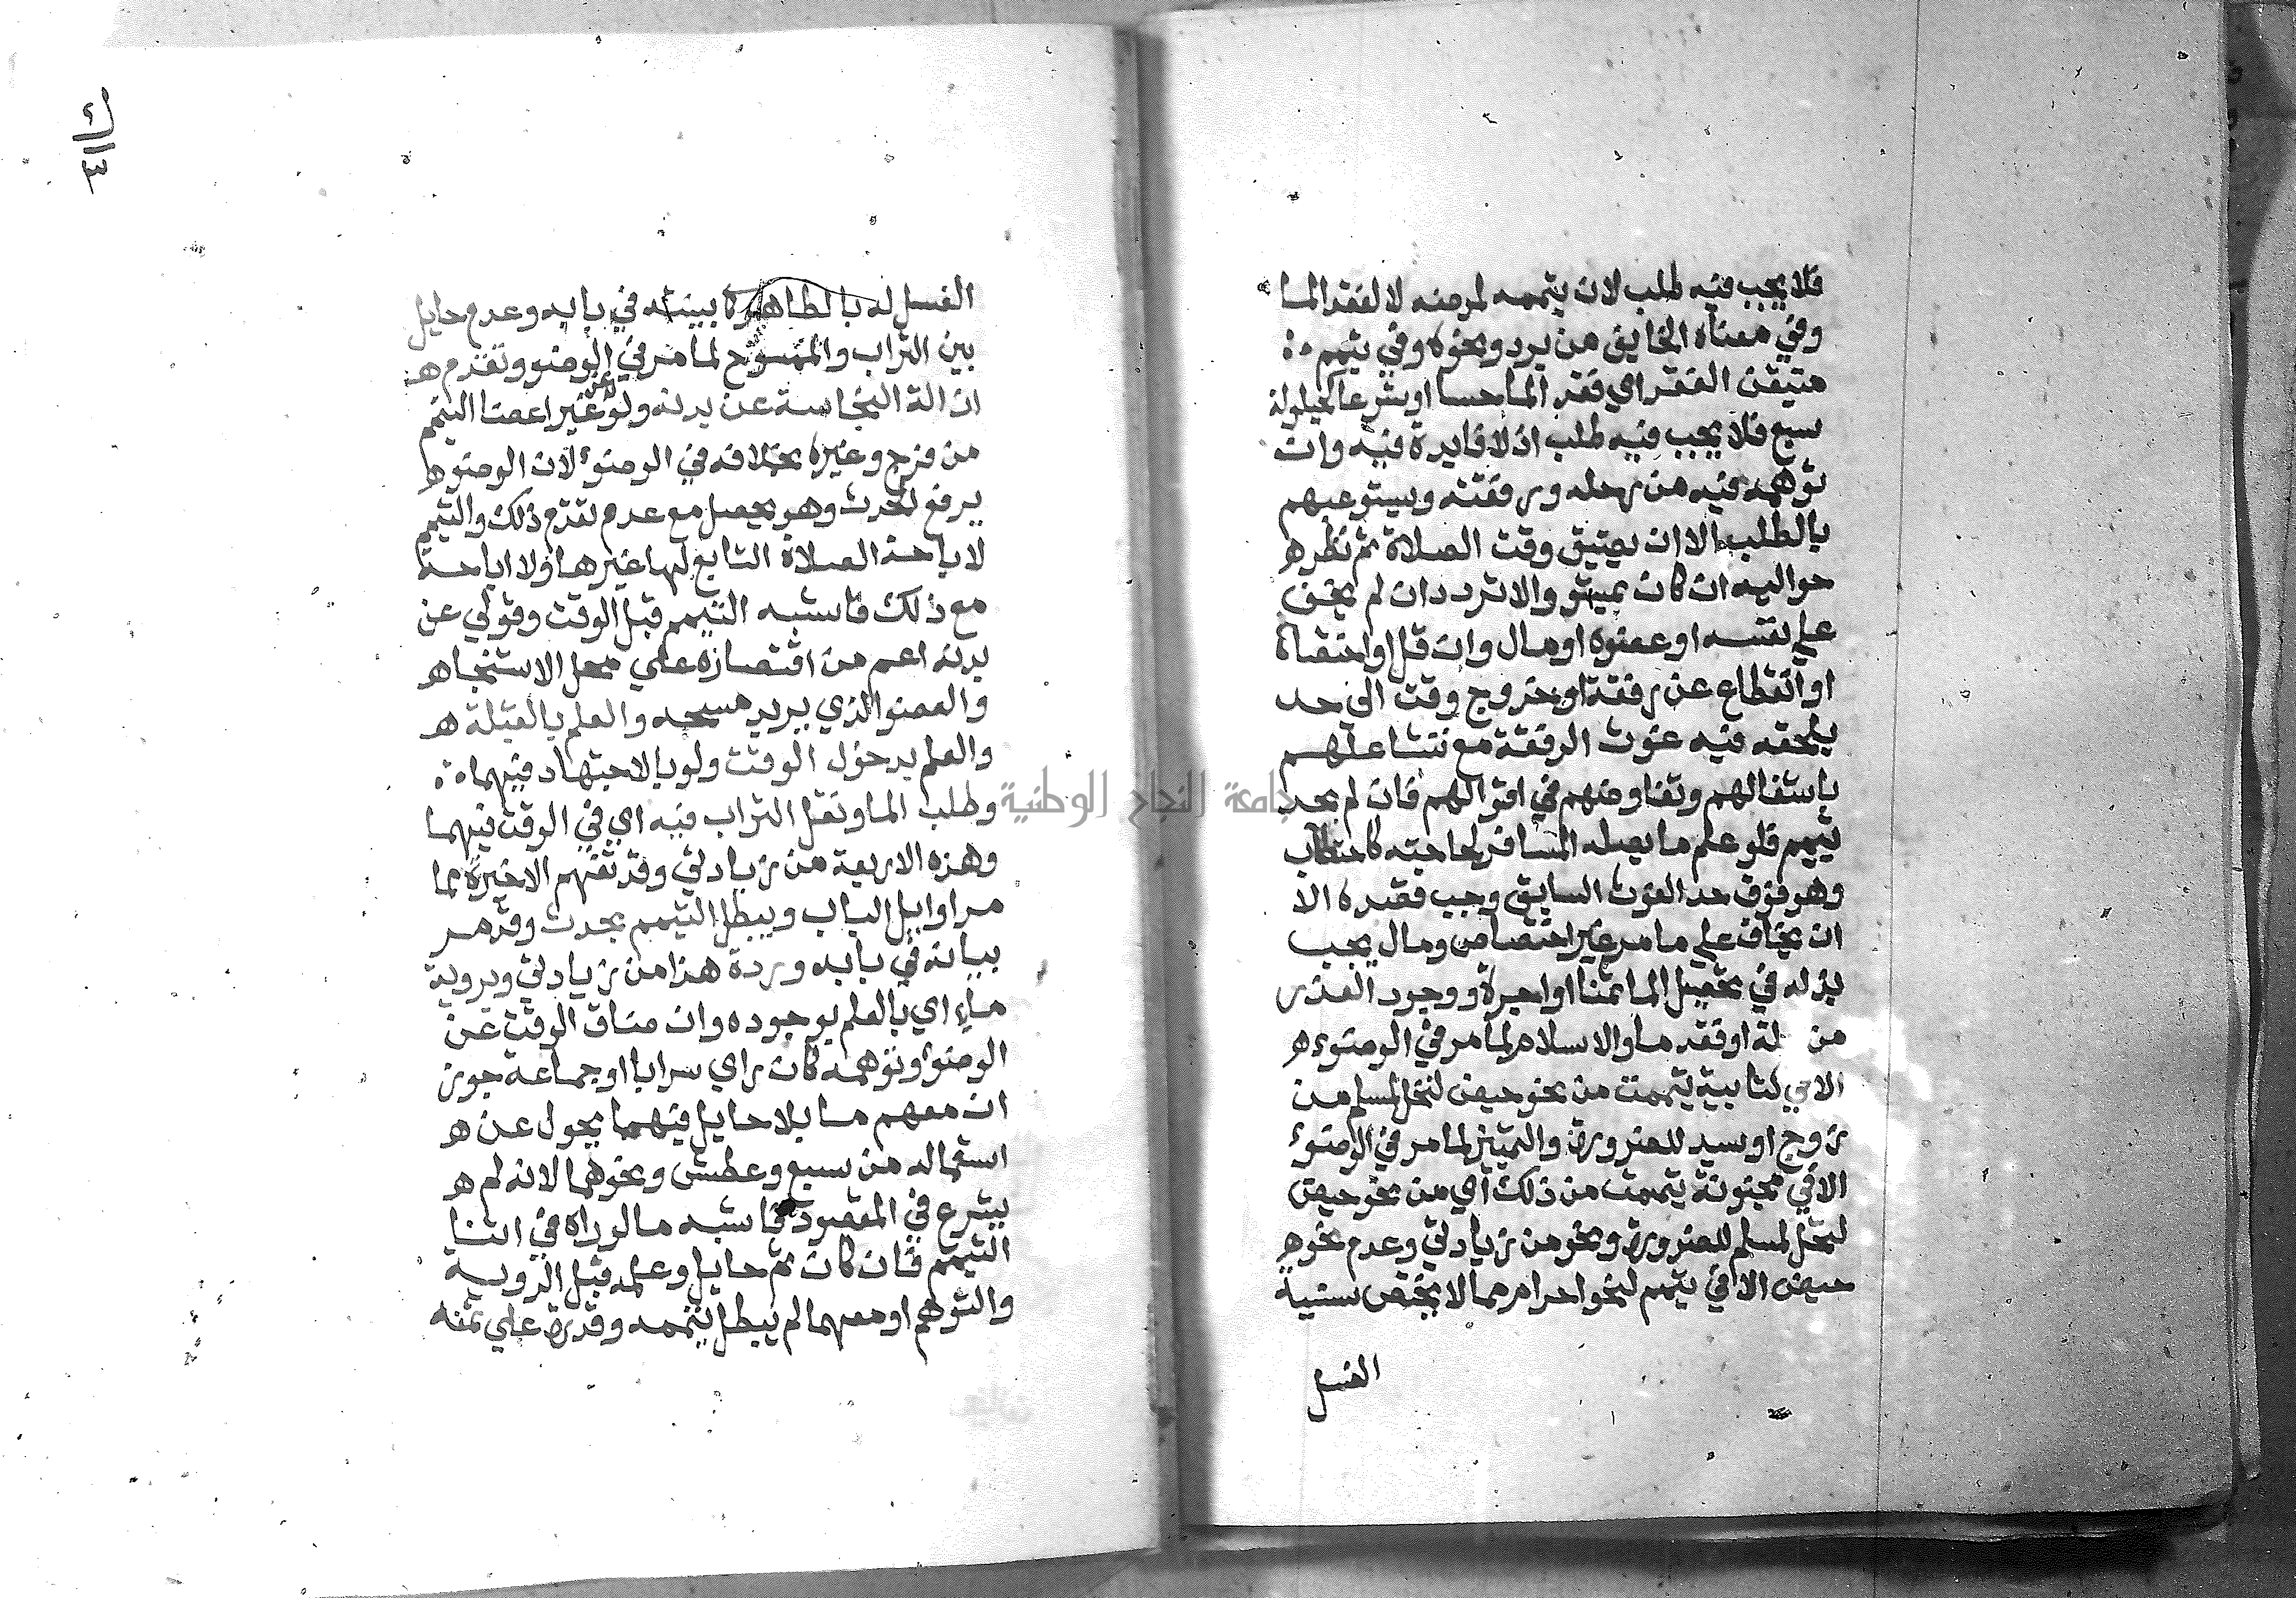 فلا يجب فيه طلب لان تيممه لمرضه لا لفقد الما
وفي معناه الخايف من برد ونحوه وفي تيمم
متيقن الفقد اي فقد الما حسا او شرعا كحيلولة
سبع فلا يجب فيه طلب اذ لا فايدة فيه وان
توهمه فيه من رحله ورفقته ويستوعبهم
بالطلب الا ان يضيق وقت الصلاة ثم نظر ه
حواليه ان كان بمستو والا تردد ان لم يخف
علي نفسه او عضوه او مال وان قل او اختصاصا
او انقطاع عن رفقة او خروج وقت الي حد
يلحقه فيه غوث الرفقة مع تشاغلهم
باشغالهم وتفاوضهم في اقوالهم فان لم يجد
تيمم فلو علم ما يصله المسافر لحاجته كاحتطاب
وهو فوق حد الغوث السابق وجب قصده الا
ان يخاف علي ما مر غير اختصاص ومال يجب
بذله في تحصيل الما ثمنا او اجرة ووجود العذر
من لة او فقد ما والاسلام لما مر في الوضوء ه
الا في كتابية تيممت من نحو حيض لتحل لمسلم من
زوج او سيد للضرورة والتمييز لما مر في الوضوء
الا في مجنونة يتممت من ذلك اي من نحو حيض
لتحل لمسلم للضرورة ونحو من زيادتي وعدم نحو ه
حيض الا في تيمم لنحو احرام مما لا يختص بسنية
الغسل
الغسل له بالطاهرة بينته في بابه وعدم حايل
بين التراب والممسوح لما مر في الوضو وتقدم ه
ازالة النجاسة عن بدنه ولو عن غير اعضا التيمم
من فرج وغيره بخلافه في الوضوء لان الوضو ه
يرفع الحدث وهو يحصل مع عدم تقدم ذلك والتيمم
لاباحة الصلاة التابع لها غيرها ولا اباحة
مع ذلك فاشبه التيمم قبل الوقت وقولي عن
بدنه اعم من اقتصاره علي محل الاستنجا ه
والعضو الذي يريد مسحه والعلم بالقبلة ه
والعلم بدخول الوقت ولو بالاجتهاد فيهما
وطلب الما ونقل التراب فيه اي في الوقت فيهما
وهذه الاربعة من زيادتي وقد تفهم الاخيرة مما
مر اوايل الباب ويبطل التيمم بحدث وقد مر
بيانه في بابه وردة هذا من زيادتي وبروية
ماء اي بالعلم بوجوده وان ضاق الوقت عن
الوضوء وتوهمه كان راي سرابا او جماعة جوز
ان معهم ما بلا حايل فيهما يحول عن ه
استعماله من سبع وعطش ونحوهما لانه لم ه
يشرع في المقصود فاشبه ما لو راه في اثنا
التيمم فان كان ثم حايل وعلمه قبل الروية
والتوهم او معهما لم يبطل تيممه وقدرة علي ثمنه
جامعة النجاح الوطنية